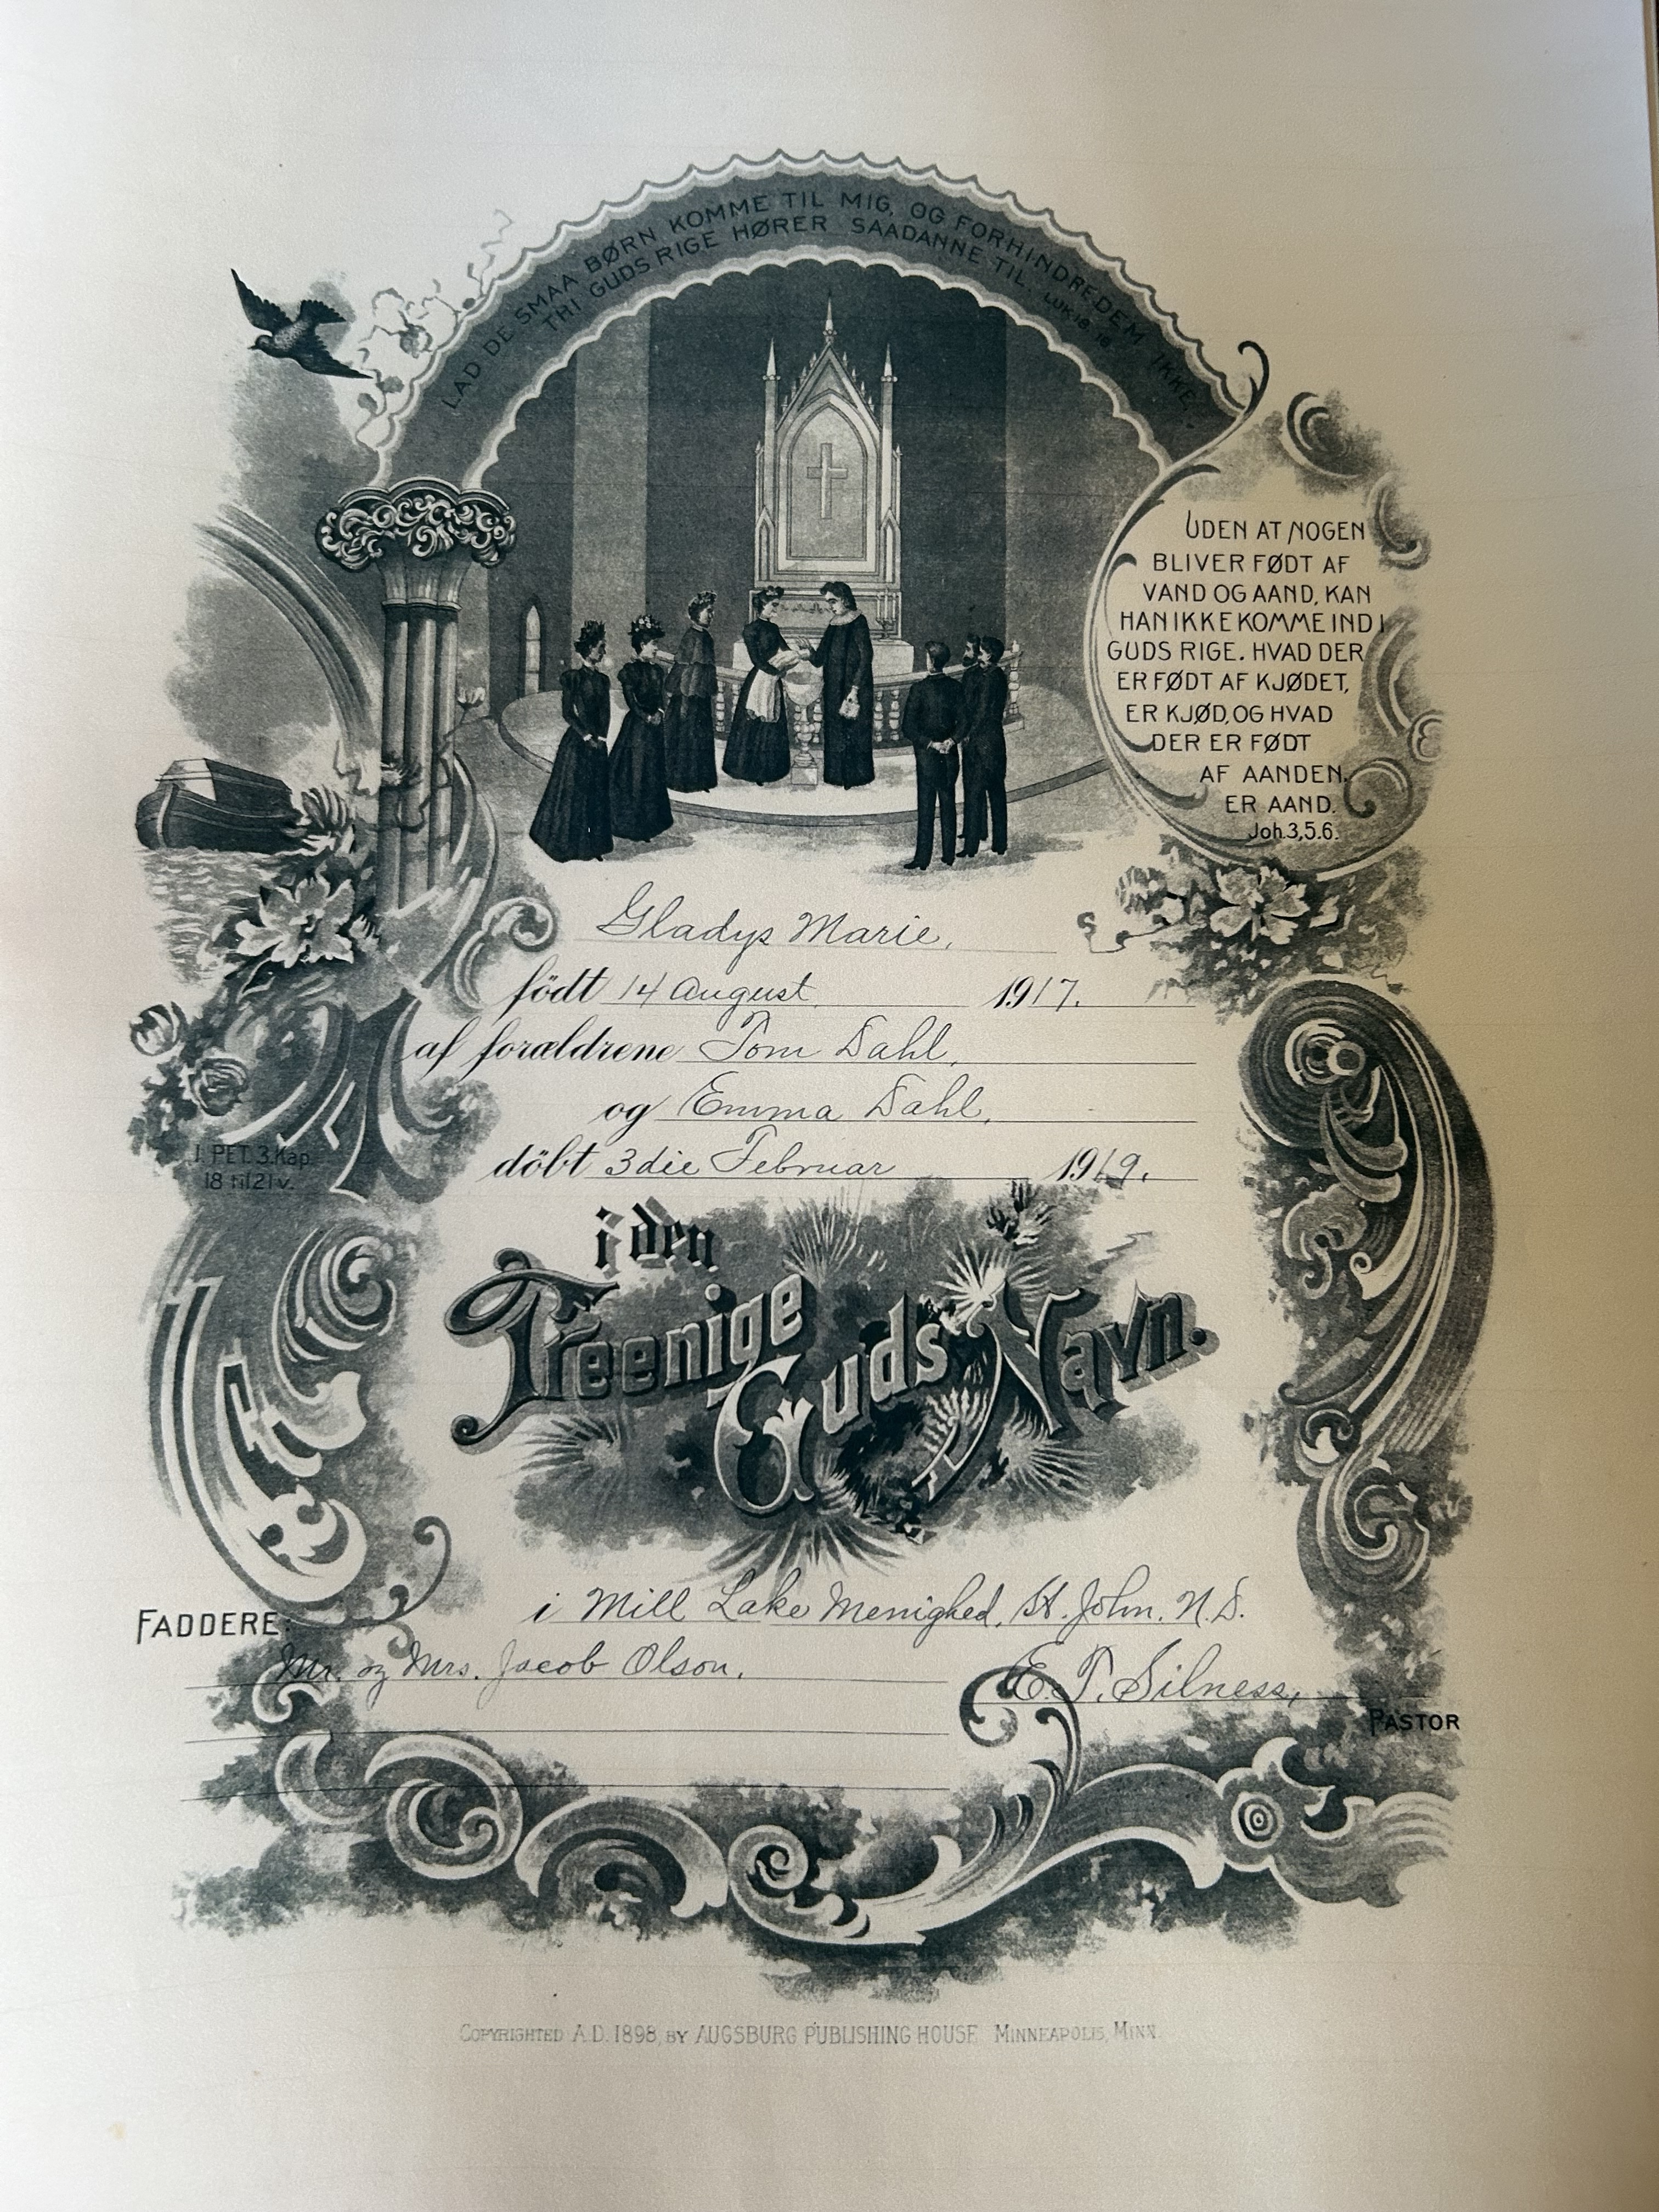 LAD DE SMAA BØRN KOMME TIL MIG, OG FORHINDRE DEM IKKE,
THI GUDS RIGE HØRER SAADANNE TIL. LUK 18, 16
UDEN AT NOGEN
BLIVER FØDT AF
VAND OG AAND, KAN
HAN IKKE KOMME IND I
GUDS RIGE. HVAD DER
ER FØDT AF KJØDET,
ER KJØD, OG HVAD
DER ER FØDT
AF AANDEN,
ER AAND.
Joh. 3,5.6.
Gladys Marie,
födt 14 August, 1917.
af forældrene Tom Dahl,
og Emma Dahl,
döbt 3die Februar 1919.
1. PET. 3. Kap.
18 til 21 v.
i den
Treenige
Guds Navn.
i Mill Lake Menighed, St. John, N. D.
FADDERE:
Mr. og Mrs. Jacob Olson.
E. T. Silness,
PASTOR
COPYRIGHTED A.D. 1898, BY AUGSBURG PUBLISHING HOUSE MINNEAPOLIS, MINN.